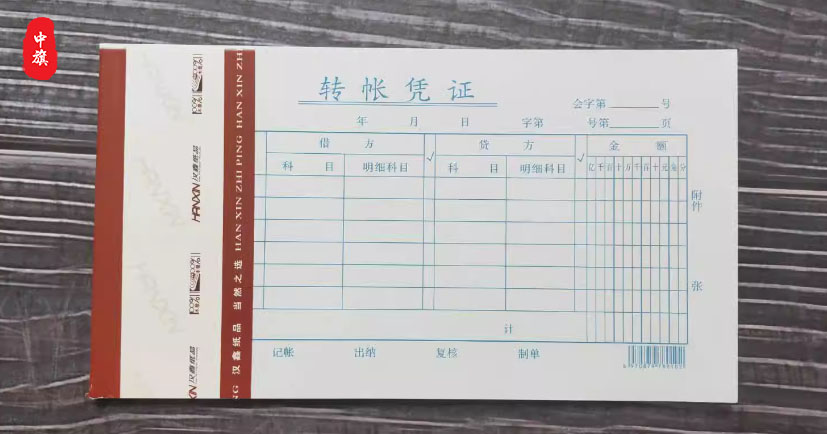 中旗
转帐凭证
会字第 号
年 月 日 字第 号第 页
借 方 √ 贷 方 √ 金 额
科 目 明细科目 科 目 明细科目 亿千百十万千百十元角分
附件
张
计
记帐 出纳 复核 制单
HANXIN 汉鑫纸品
HANXIN 汉鑫纸品
汉鑫纸品 当然之选 HAN XIN ZHI PING HAN XIN ZH